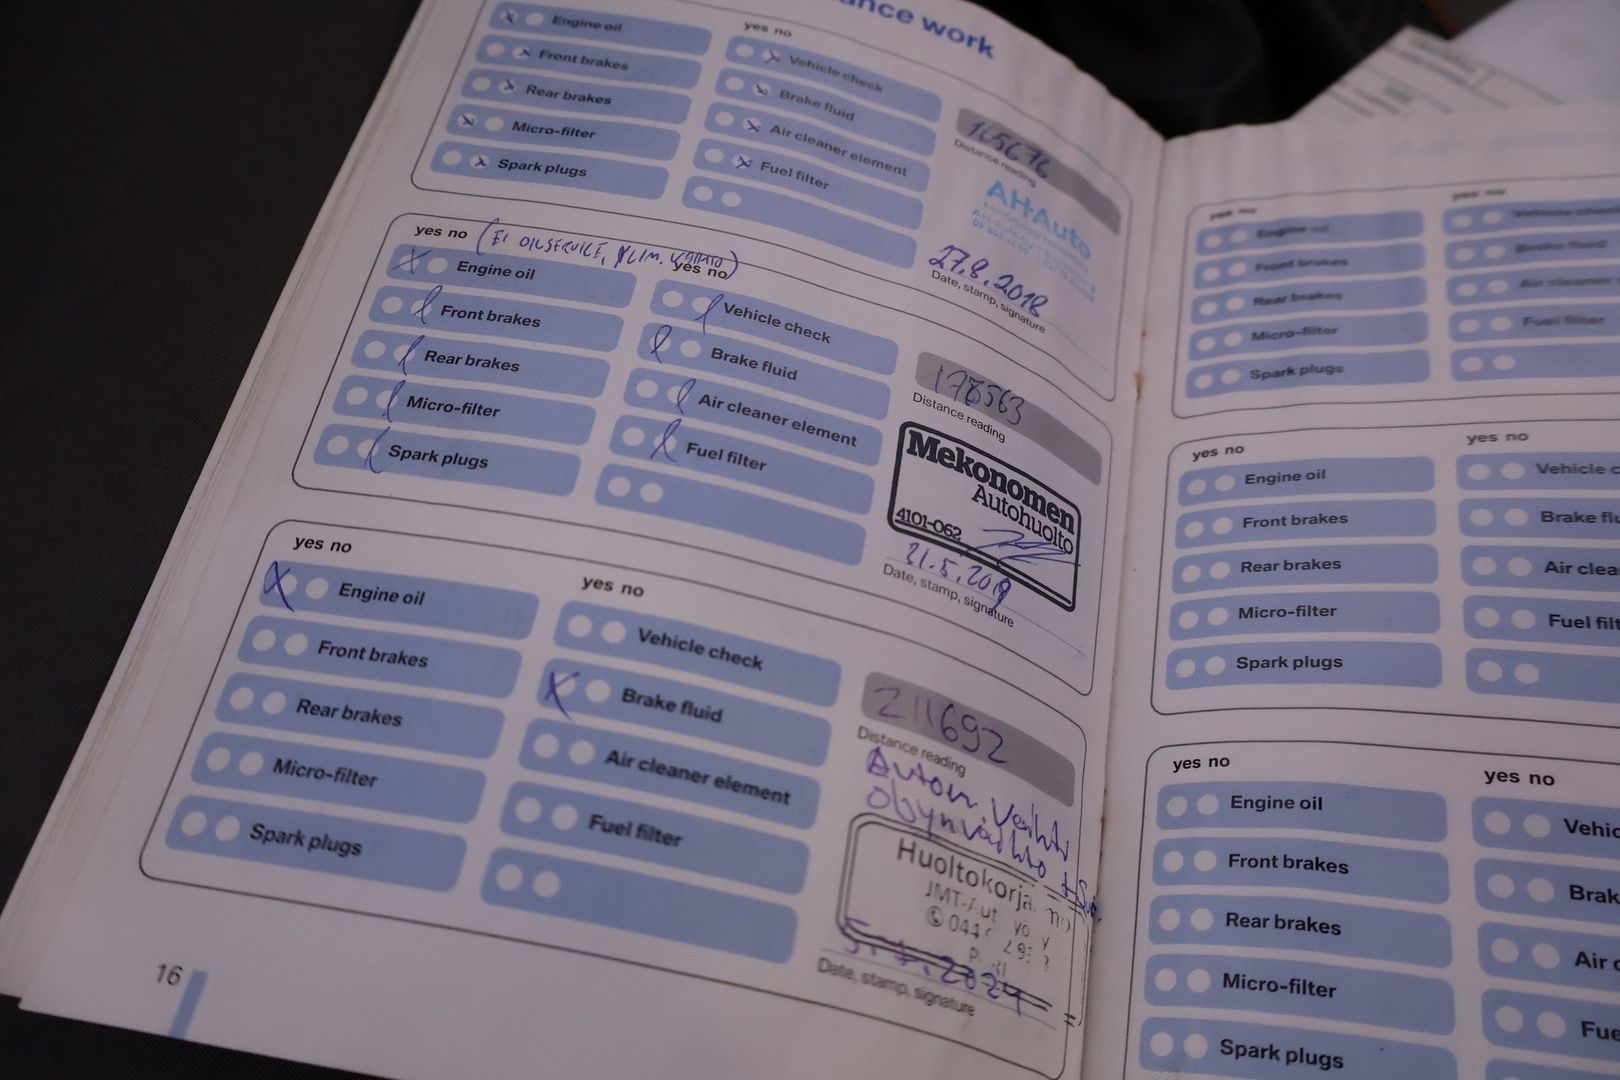 work
Engine oil
Front brakes
Rear brakes
Micro-filter
Spark plugs
yes no
Vehicle check
Brake fluid
Air cleaner element
Fuel filter
165676
Distance reading
AH-Auto
27.8.2018
Date, stamp, signature
yes no
Engine oil
Front brakes
Rear brakes
Micro-filter
Spark plugs
yes no
Vehicle check
Brake fluid
Air cleaner element
Fuel filter
178563
Distance reading
Mekonomen
Autohuolto
4101-062
Date, stamp, signature
yes no
Engine oil
Front brakes
Rear brakes
Micro-filter
Spark plugs
yes no
Vehicle check
Brake fluid
Air cleaner element
Fuel filter
211692
Distance reading
Date, stamp, signature
16
yes no
Engine oil
Front brakes
Rear brakes
Micro-filter
Spark plugs
yes no
Vehicle
Brake fluid
Air cleaner
Fuel filter
yes no
Engine oil
Front brakes
Rear brakes
Micro-filter
Spark plugs
yes no
Vehicle c
Brake flu
Air clea
Fuel filt
yes no
Engine oil
Front brakes
Rear brakes
Micro-filter
Spark plugs
yes no
Vehic
Brak
Air c
Fue